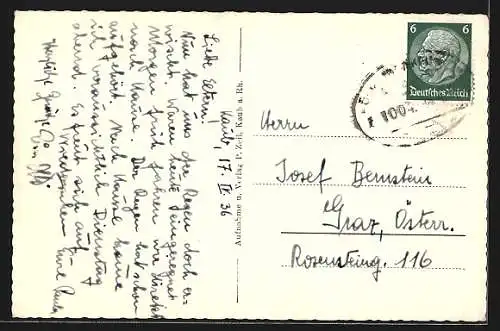 Kaub, 17. IV 36
Liebe Eltern!
Nun hat uns der Regen doch er-
wischt. Waren heute eingeregnet
Morgen früh fahren wir direkt
nach Hause. Der Regen hat schon
aufgehört. Nach Hause komme
ich voraussichtlich Dienstag
abend. Es freut sich auf
Eure
Herzliche Grüße
Aufnahme u. Verlag P. Zeil, Kaub a. Rh.
6 6
Deutsches Reich
1004
Herrn
Josef Bernstein
Graz, Österr.
Rosensteing. 116